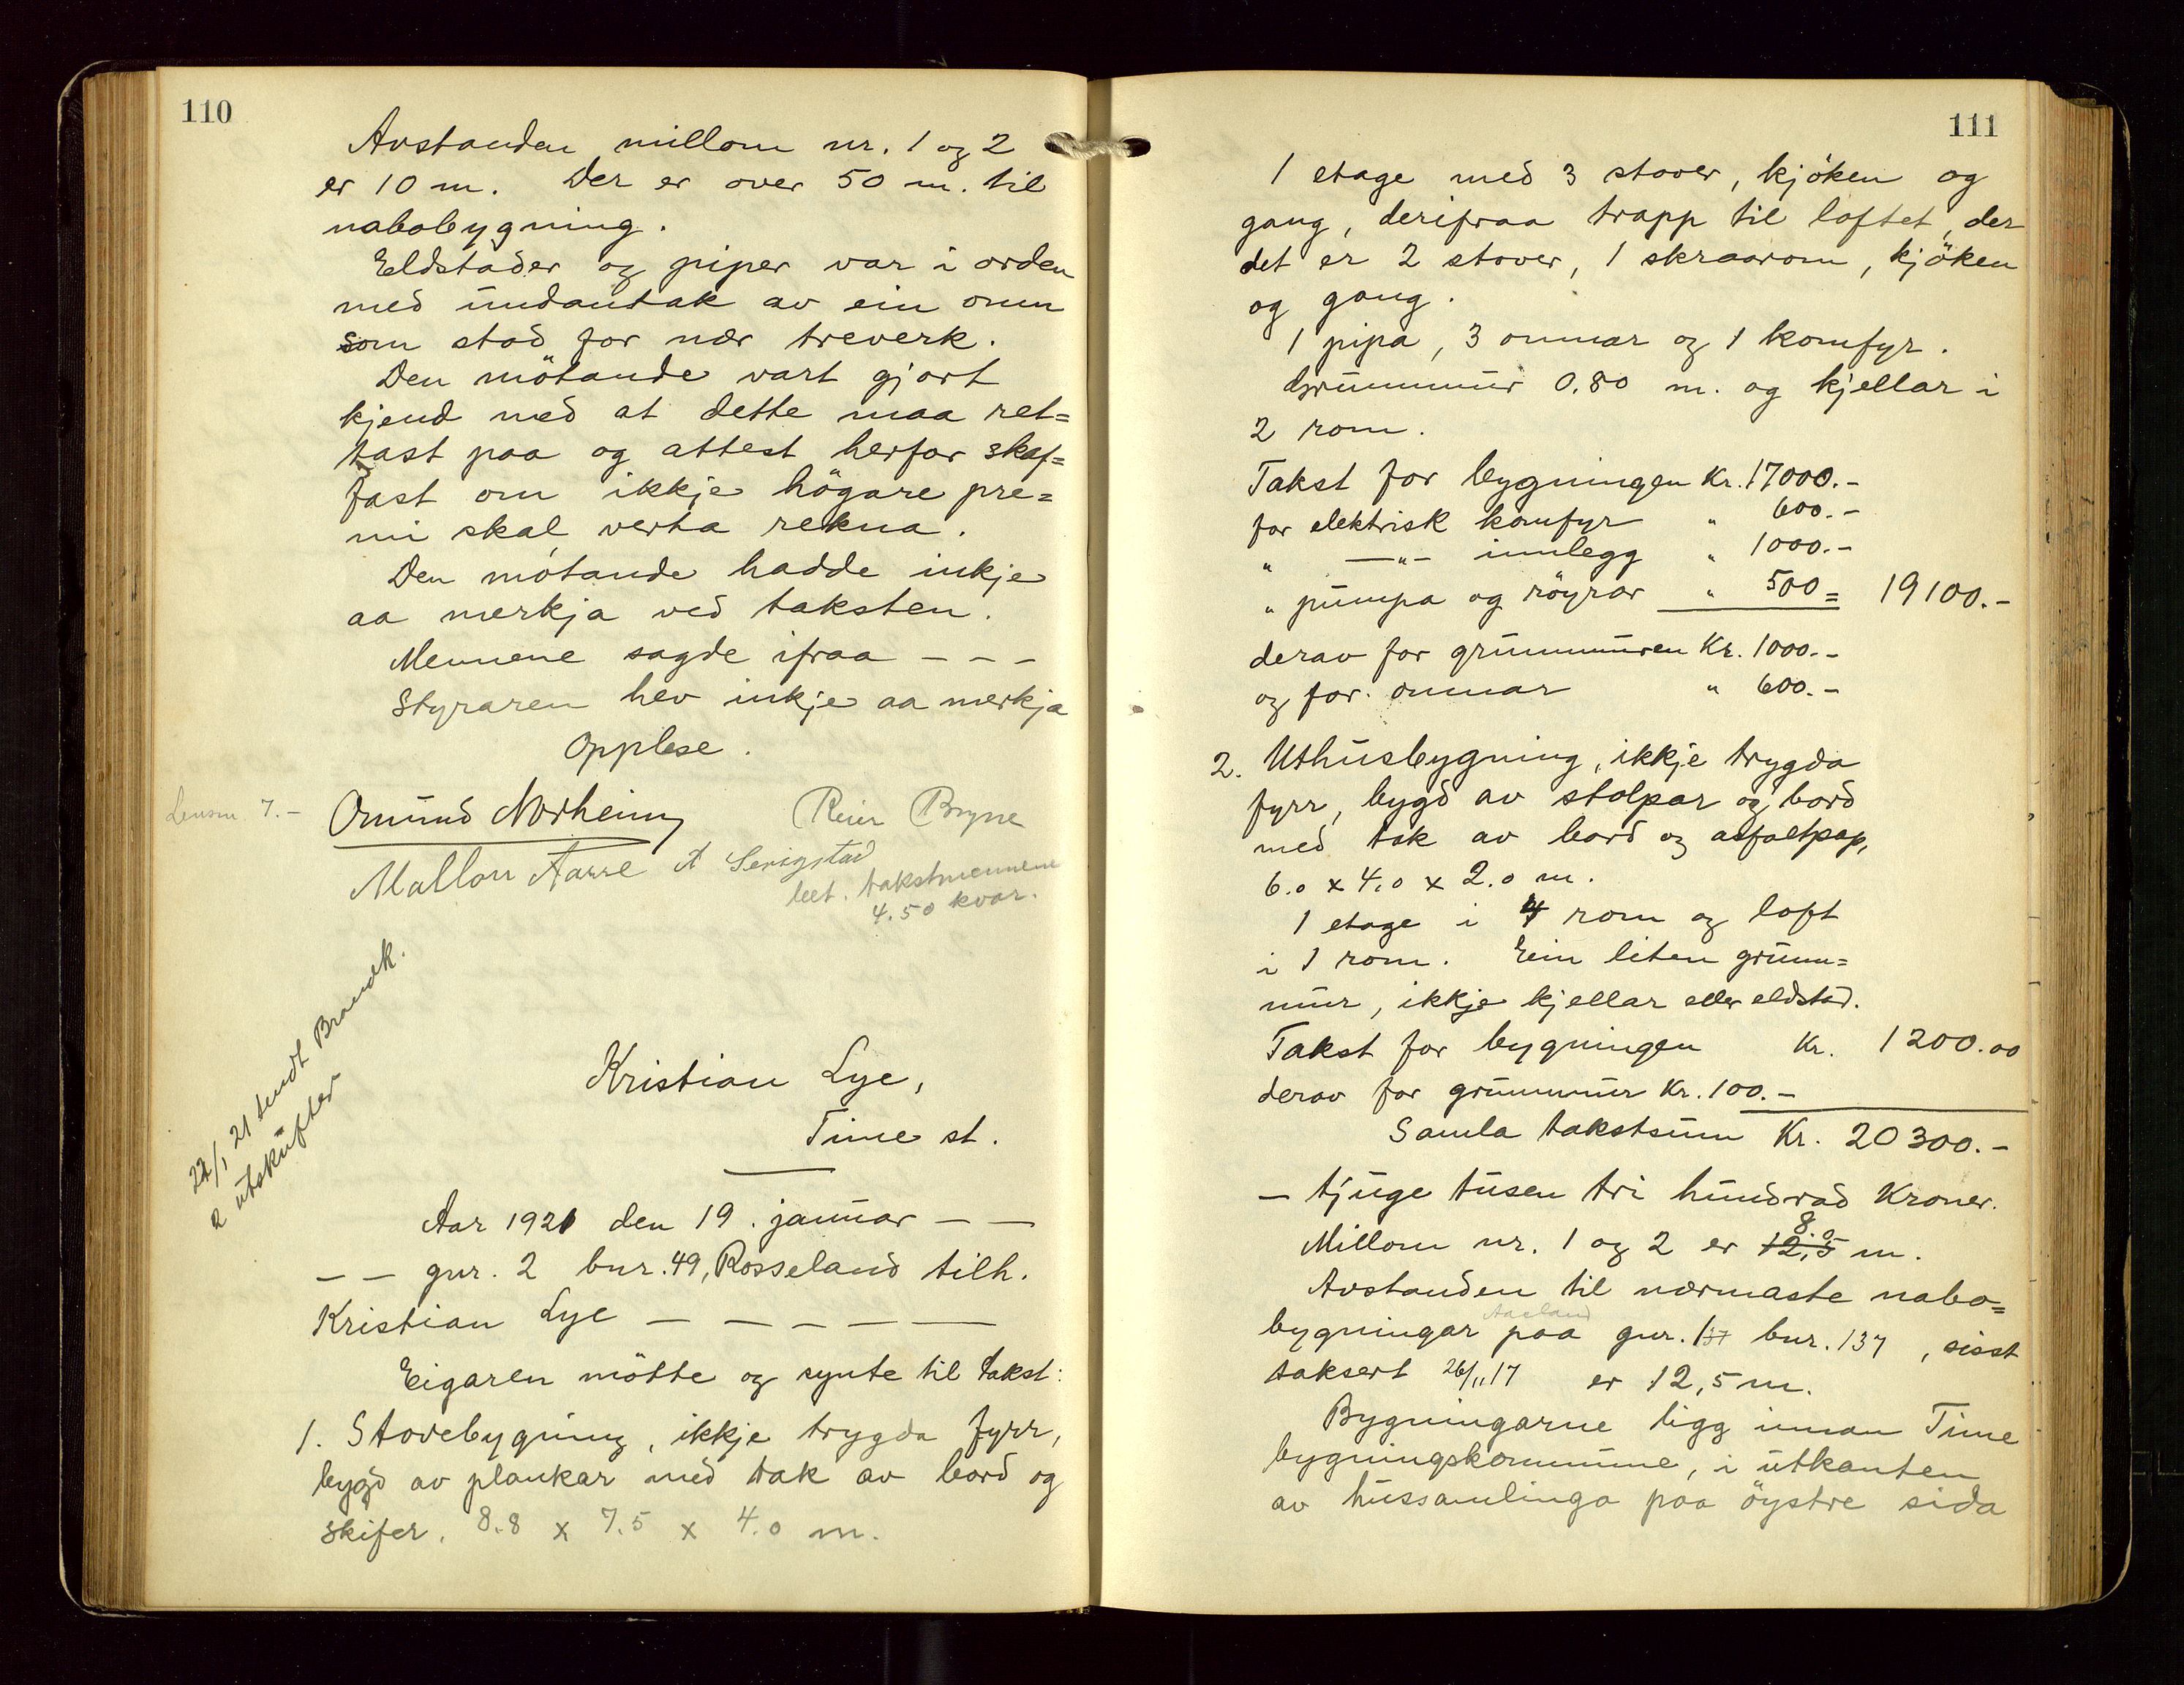 110
Avstanden millom nr. 1 og 2
er 10 m. Der er over 50 m. til
nabobygning.
Eldstader og piper var i orden
med undantak av ein omn
som stod for nær treverk.
Den mötande vart gjort
kjend med at dette maa ret=
tast paa og attest herfor skaf=
fast om ikkje högare pre=
mi skal verta rekna.
Den mötande hadde inkje
aa merkja ved taksten.
Mennene sagde ifraa - - -
Styraren hev inkje aa merkja
Opplese.
Lensm. 7.- Omund Norheim Reier Bryne
Mallon Aarre A Serigstad
bet. takstmennene
4.50 kvar.
22/1 21 sendt Brandk.
2 utskrifter
Kristian Lye,
Time st.
Aar 1921 den 19. januar - -
- - gnr. 2 bnr. 49, Rosseland tilh.
Kristian Lye - - - - -
Eigaren mötte og synte til takst:
1. Stovebygning, ikkje trygda fyrr,
bygd av plankar med tak av bord og
skifer. 8.8 x 7.5 x 4.0 m.
111
1 etage med 3 stover, kjöken og
gang, derifraa trapp til loftet, der
det er 2 stover, 1 skraarom, kjöken
og gang.
1 pipa, 3 omnar og 1 komfyr.
Grunnmur 0.80 m. og kjellar i
2 rom.
Takst for bygningen Kr. 17000.-
for elektrisk komfyr " 600.-
" -"- innlegg " 1000.-
" pumpa og röyrar " 500= 19100.-
derav for grunnmuren Kr. 1000.-
og for omnar " 600.-
2. Uthusbygning, ikkje trygda
fyrr, bygd av stolpar og bord
med tak av bord og asfaltpap,
6.0 x 4.0 x 2.0 m.
1 etage i 4 rom og loft
i 1 rom. Ein liten grunn=
mur, ikkje kjellar eller eldstad.
Takst for bygningen Kr. 1200.00
derav for grunnmur Kr. 100.-
Samla takstsum Kr. 20300.-
- tjuge tusen tri hundrad Kroner.
Millom nr. 1 og 2 er 12,5 8.0 m.
Avstanden til nærmaste nabo=
Aaeland
bygningar paa gnr. 1 bnr. 137, sisst
taksert 26/11 17 er 12,5 m.
Bygningarne ligg innan Time
bygningskommune, i utkanten
av hussamlinga paa öystre sida